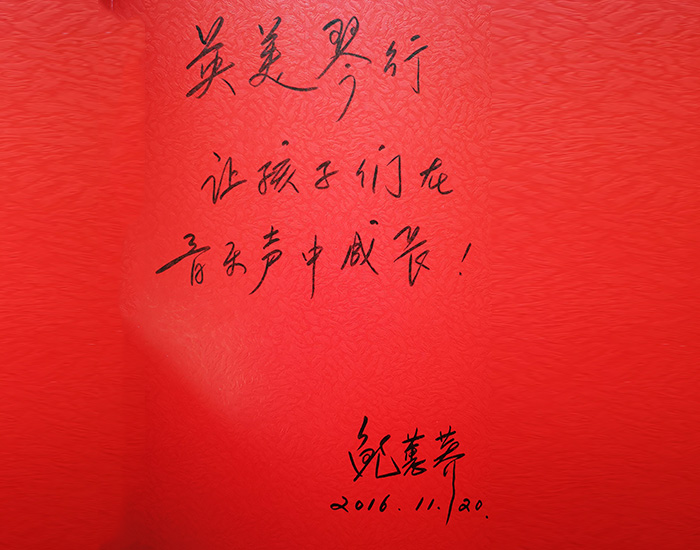 英美琴行
让孩子们在
音乐声中成长!
鲍蕙荞
2016.11.20.